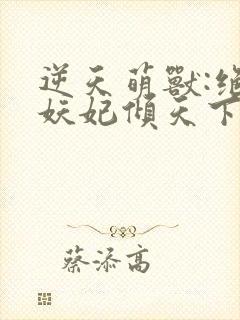 逆天萌獸:絕
妖妃傾天下
蔡添高